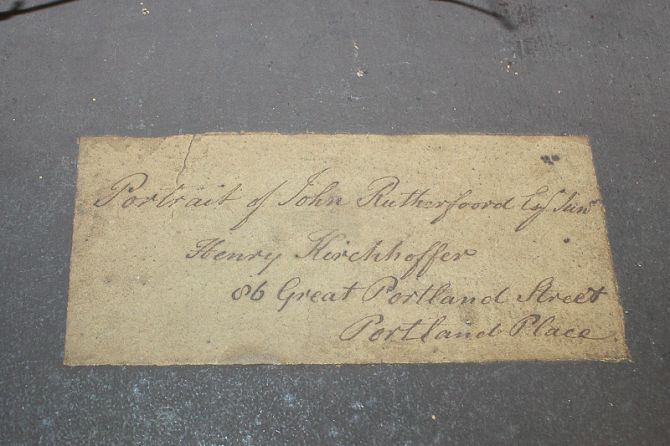 Portrait of John Rutherfoord Esqr Junr
Henry Kirchhoffer
86 Great Portland Street
Portland Place